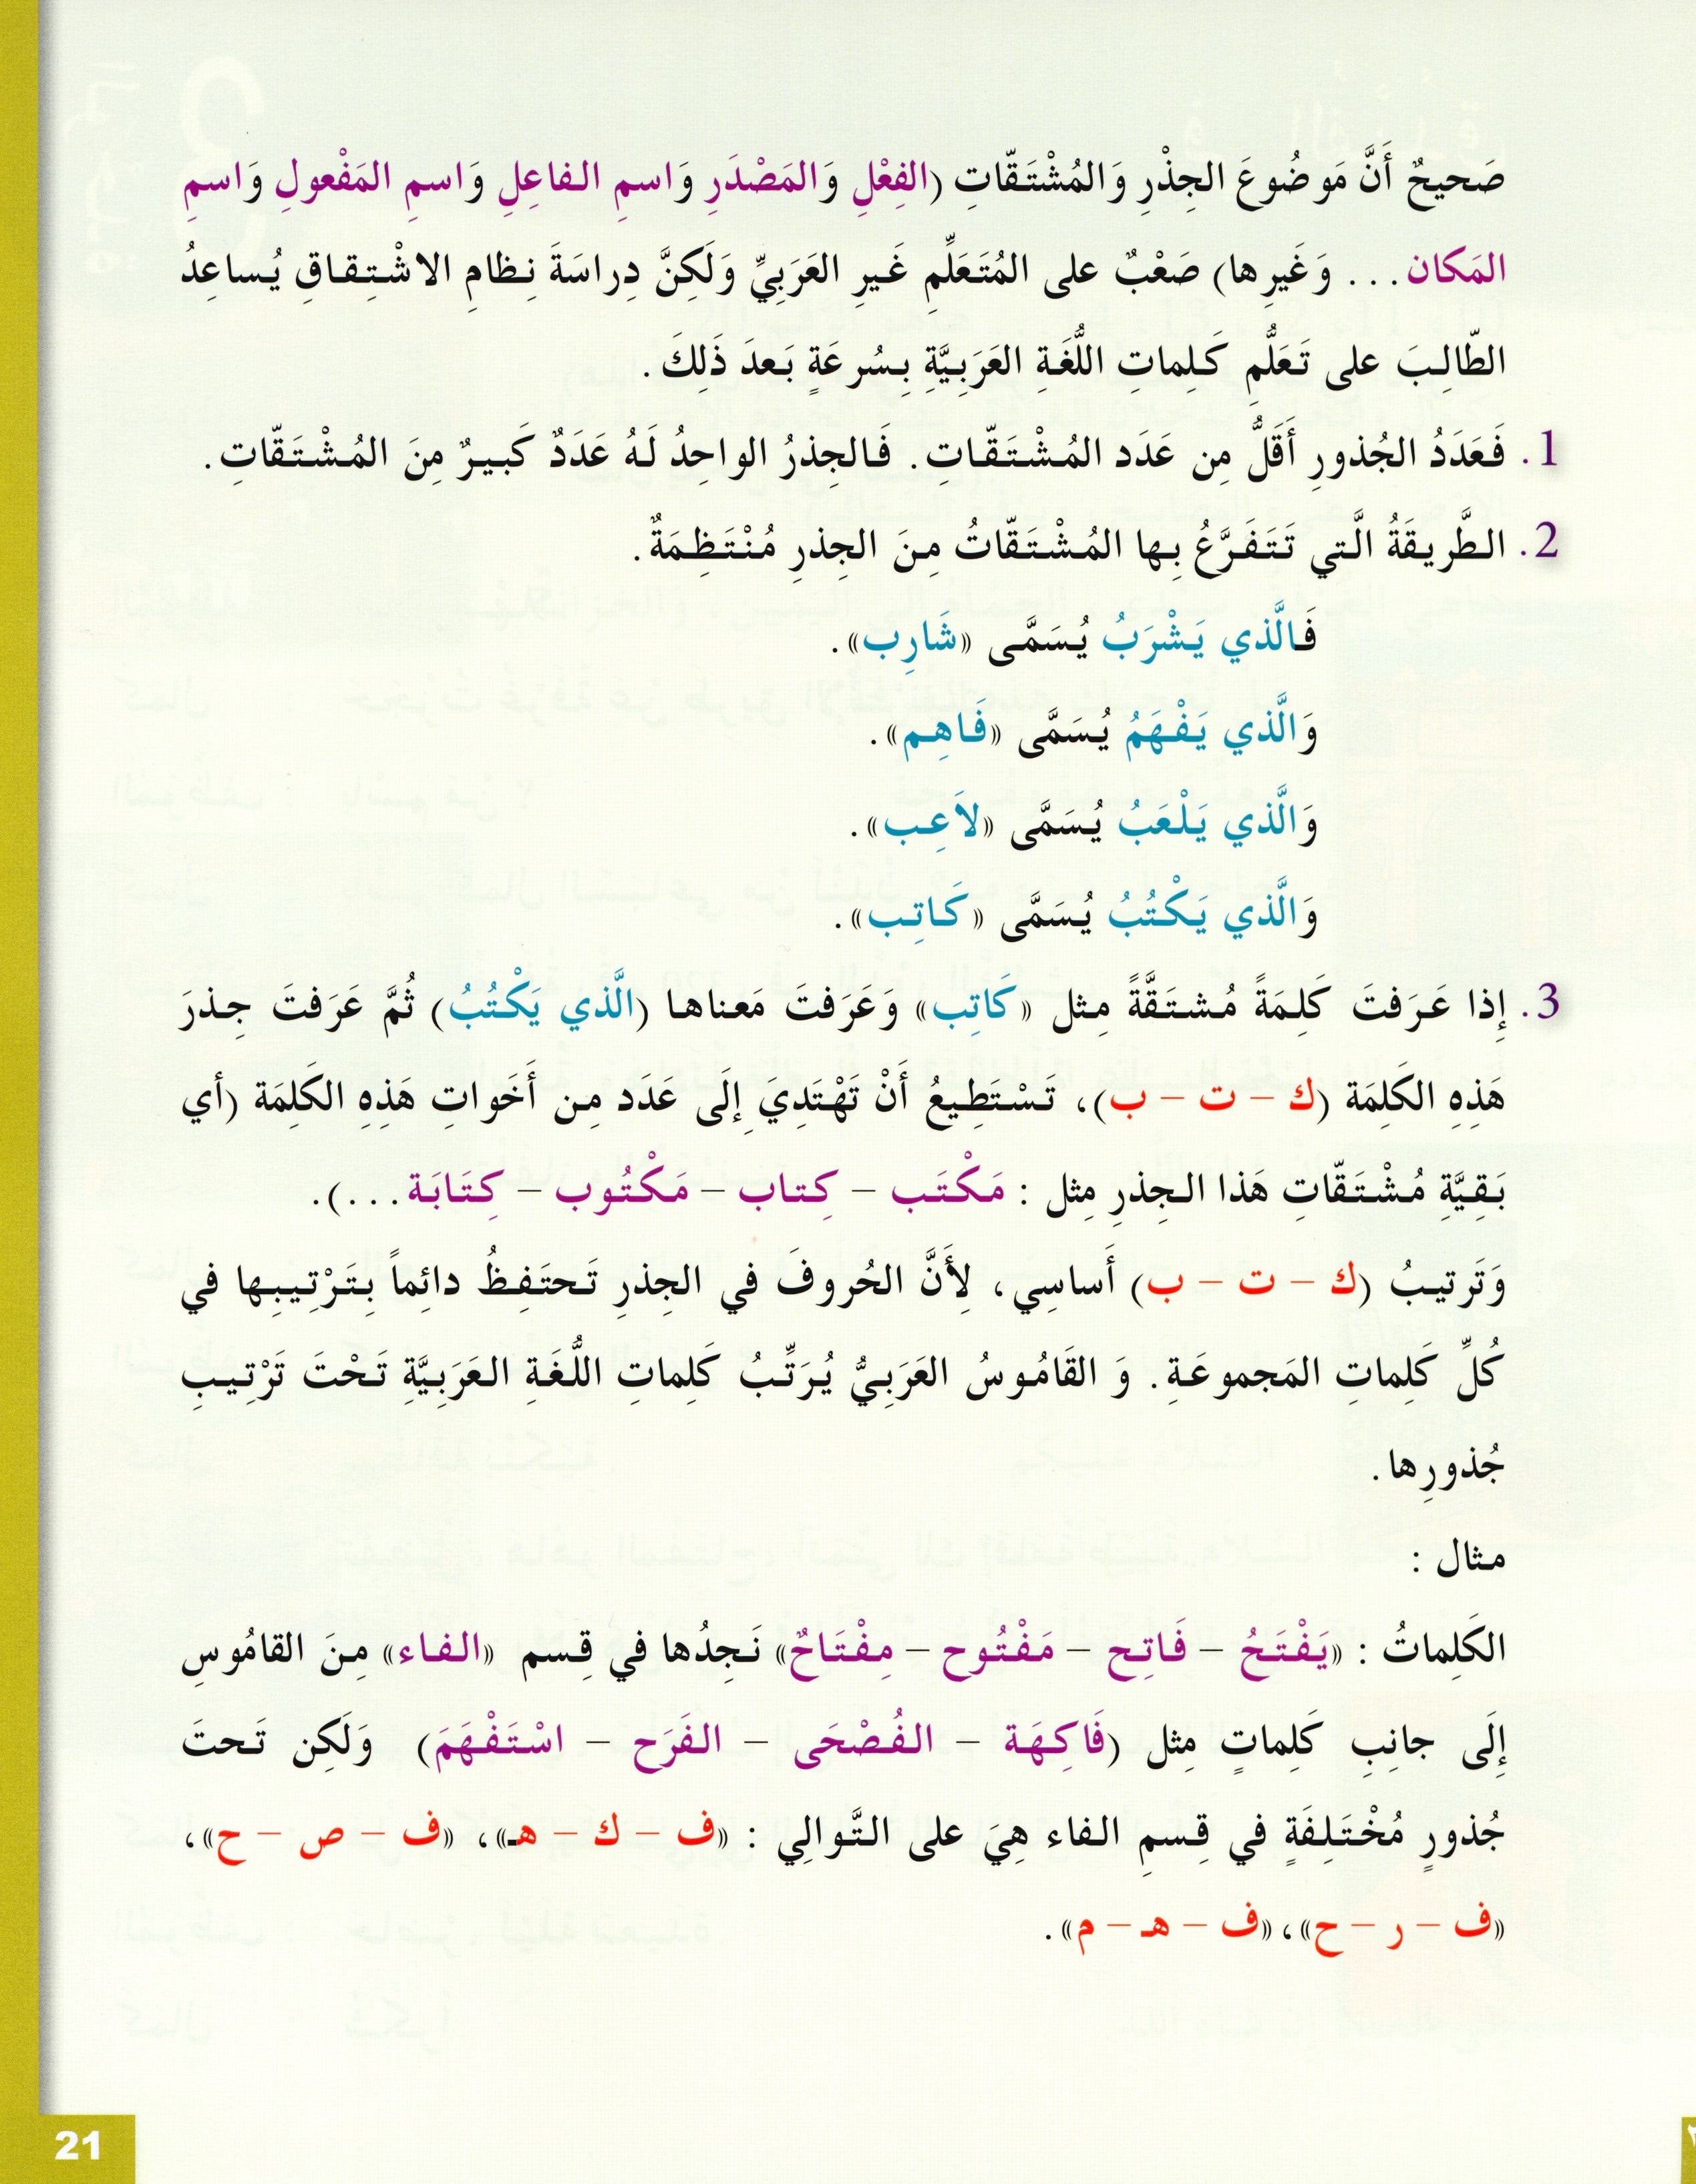 صَحيحٌ أَنَّ مَوضُوعَ الجِذْرِ وَالمُشْتَقّاتِ (الفِعْلِ وَالمَصْدَرِ وَاسمِ الفاعِلِ وَاسمِ المَفْعولِ وَاسمِ
المَكان... وَغَيرِها) صَعْبٌ على المُتَعَلِّمِ غَيرِ العَرَبِيِّ وَلَكِنَّ دِراسَةَ نِظامِ الاشْتِقاقِ يُساعِدُ
الطّالِبَ على تَعَلُّمِ كَلِماتِ اللُّغَةِ العَرَبِيَّةِ بِسُرعَةٍ بَعدَ ذَلِكَ.
1. فَعَدَدُ الجُذورِ أَقَلُّ مِن عَدَد المُشْتَقّاتِ. فَالجِذرُ الواحِدُ لَهُ عَدَدٌ كَبيرٌ مِنَ المُشْتَقّاتِ.
2. الطَّريقَةُ الَّتي تَتَفَرَّعُ بِها المُشْتَقّاتُ مِنَ الجِذرِ مُنْتَظِمَةٌ.
فَالَّذي يَشْرَبُ يُسَمَّى «شَارِب».
وَالَّذي يَفْهَمُ يُسَمَّى «فَاهِم».
وَالَّذي يَلْعَبُ يُسَمَّى «لاَعِب».
وَالَّذي يَكْتُبُ يُسَمَّى «كَاتِب».
3. إِذا عَرَفتَ كَلِمَةً مُشتَقَّةً مِثل «كَاتِب» وَعَرَفتَ مَعناها (الَّذي يَكْتُبُ) ثُمَّ عَرَفتَ جِذرَ
هَذِهِ الكَلِمَة (ك – ت – ب)، تَسْتَطِيعُ أَنْ تَهْتَدِيَ إِلَى عَدَد مِن أَخَواتِ هَذِهِ الكَلِمَة (أي
بَقِيَّةِ مُشْتَقّاتِ هَذا الجِذرِ مِثل : مَكْتَب – كِتاب – مَكْتُوب – كِتَابَة...).
وَتَرتيبُ (ك – ت – ب) أَساسِي، لِأَنَّ الحُروفَ في الجِذرِ تَحتَفِظُ دائِماً بِتَرْتِيبِها في
كُلِّ كَلِماتِ المَجموعَةِ. وَ القَامُوسُ العَرَبيُّ يُرَتِّبُ كَلِماتِ اللُّغَةِ العَرَبِيَّةِ تَحْتَ تَرْتِيبِ
جُذورِها.
مثال :
الكَلِماتُ : «يَفْتَحُ – فَاتِح – مَفْتُوح – مِفْتَاحٌ» نَجِدُها في قِسم «الفاء» مِنَ القامُوسِ
إِلَى جانِبِ كَلِماتٍ مِثل (فَاكِهَة – الفُصْحَى – الفَرَح – اسْتَفْهَمَ) وَلَكِن تَحتَ
جُذورٍ مُخْتَلِفَةٍ في قِسمِ الفاء هِيَ على التَّوالِي : «ف – ك – هـ»، «ف – ص – ح»،
«ف – ر – ح»، «ف – هـ – م».
21